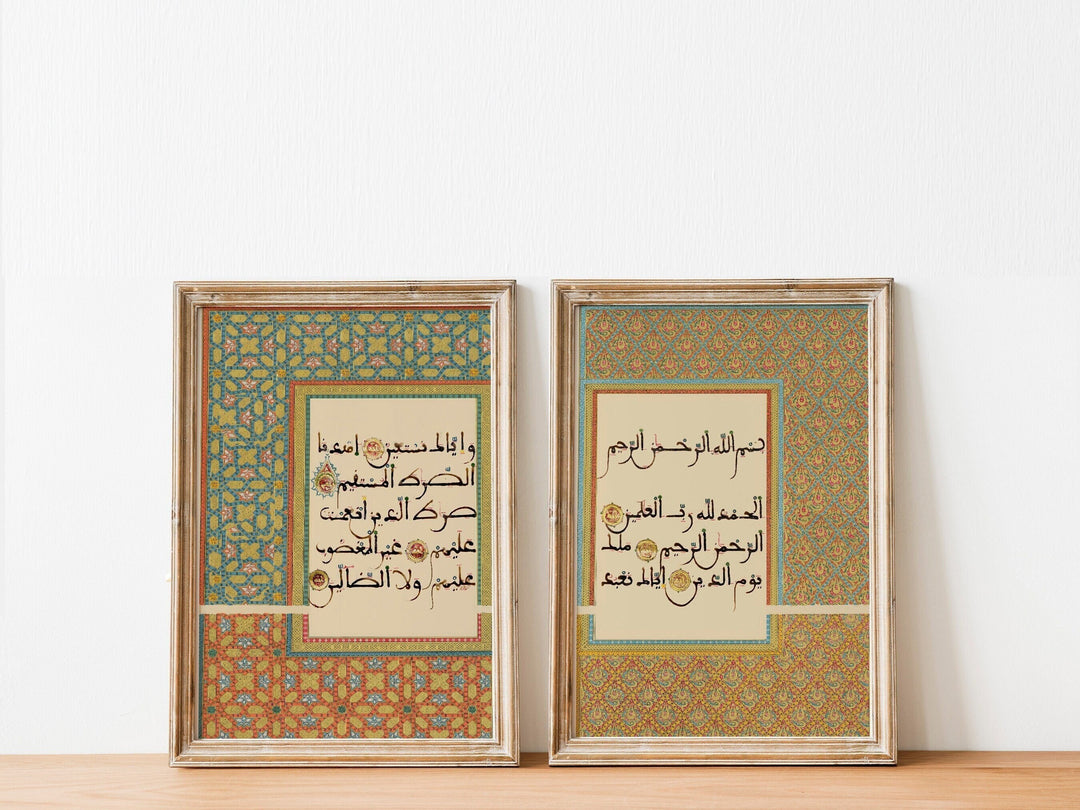 بسم الله الرحمن الرحيم
الحمد لله رب العلمين
الرحمن الرحيم ملك
يوم الدين اياك نعبد
واياك نستعين اهدنا
الصرط المستقيم
صرط الذين انعمت
عليهم غير المغضوب
عليهم ولا الضالين